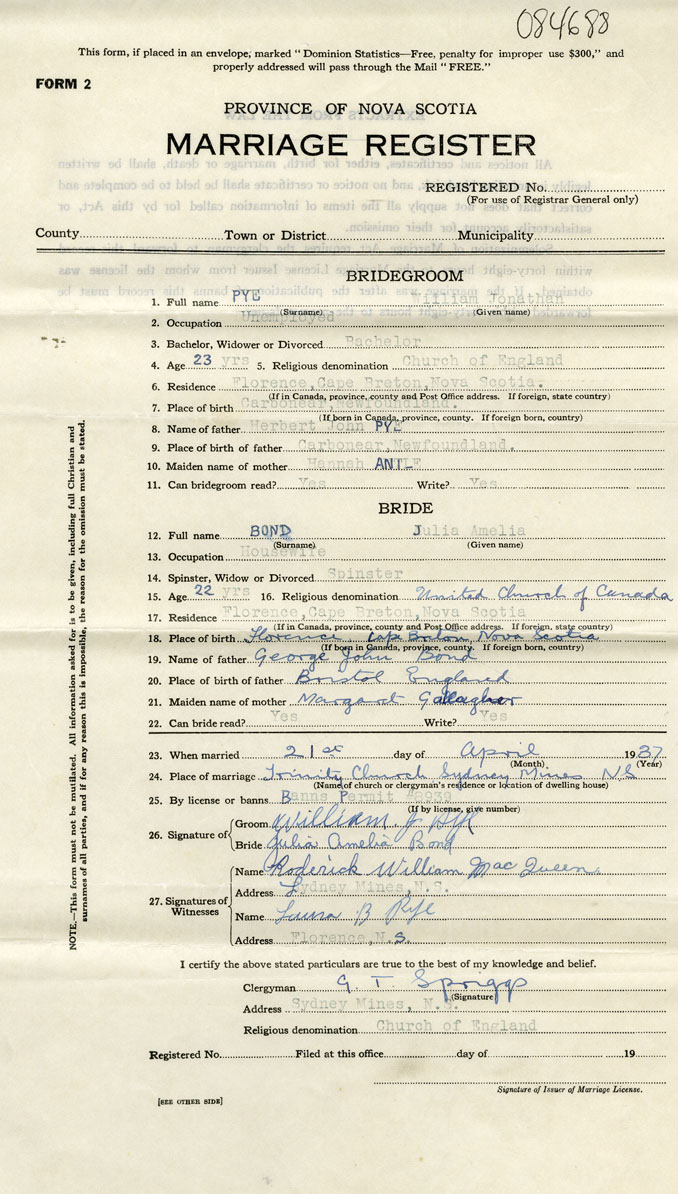 084688
This form, if placed in an envelope, marked "Dominion Statistics—Free, penalty for improper use $300," and
properly addressed will pass through the Mail "FREE."
FORM 2
PROVINCE OF NOVA SCOTIA
MARRIAGE REGISTER
REGISTERED No.
(For use of Registrar General only)
County Town or District Municipality
BRIDEGROOM
1. Full name PYE William Jonathan
(Surname) (Given name)
2. Occupation Unemployed
3. Bachelor, Widower or Divorced Bachelor
4. Age 23 yrs 5. Religious denomination Church of England
6. Residence Florence, Cape Breton, Nova Scotia.
(If in Canada, province, county and Post Office address. If foreign, state country)
7. Place of birth Carbonear, Newfoundland.
(If born in Canada, province, county. If foreign born, country)
8. Name of father Herbert John PYE
9. Place of birth of father Carbonear, Newfoundland.
10. Maiden name of mother Hannah ANTLE
11. Can bridegroom read? Yes Write? Yes
BRIDE
12. Full name BOND Julia Amelia
(Surname) (Given name)
13. Occupation Housewife
14. Spinster, Widow or Divorced Spinster
15. Age 22 yrs 16. Religious denomination United Church of Canada
17. Residence Florence, Cape Breton, Nova Scotia
(If in Canada, province, county and Post Office address. If foreign, state country)
18. Place of birth Florence Cape Breton, Nova Scotia
(If born in Canada, province, county. If foreign born, country)
19. Name of father George John Bond
20. Place of birth of father Bristol England
21. Maiden name of mother Margaret Gallagher
22. Can bride read? Yes Write? Yes
23. When married 21st day of April 1937
(Month) (Year)
24. Place of marriage Trinity Church Sydney Mines NS
(Name of church or clergyman's residence or location of dwelling house)
25. By license or banns Banns Permit #8930
(If by license, give number)
26. Signature of
Groom William J Pye
Bride Julia Amelia Bond
27. Signatures of Witnesses
Name Roderick William MacQueen
Address Sydney Mines, N.S.
Name Laura B Pye
Address Florence, N.S.
I certify the above stated particulars are true to the best of my knowledge and belief.
Clergyman G. T. Spriggs
(Signature)
Address Sydney Mines, N.S.
Religious denomination Church of England
Registered No. Filed at this office day of 19
Signature of Issuer of Marriage License.
[SEE OTHER SIDE]
NOTE.—This form must not be mutilated. All information asked for is to be given, including full Christian and
surnames of all parties, and if for any reason this is impossible, the reason for the omission must be stated.